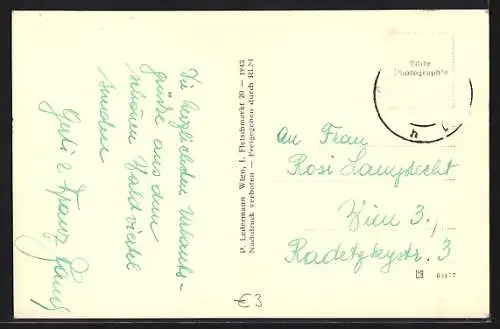 Die herzlichsten Urlaubs-
grüße aus dem
schönen Waldviertel
senden
Gusti & Franz
P. Ledermann Wien, I. Fleischmarkt 20 — 1943
Nachdruck verboten — Freigegeben durch RLM
Echte
Photographie
An Frau
Rosi Lamprecht
Wien 3.,
Radetzkystr. 3
€3